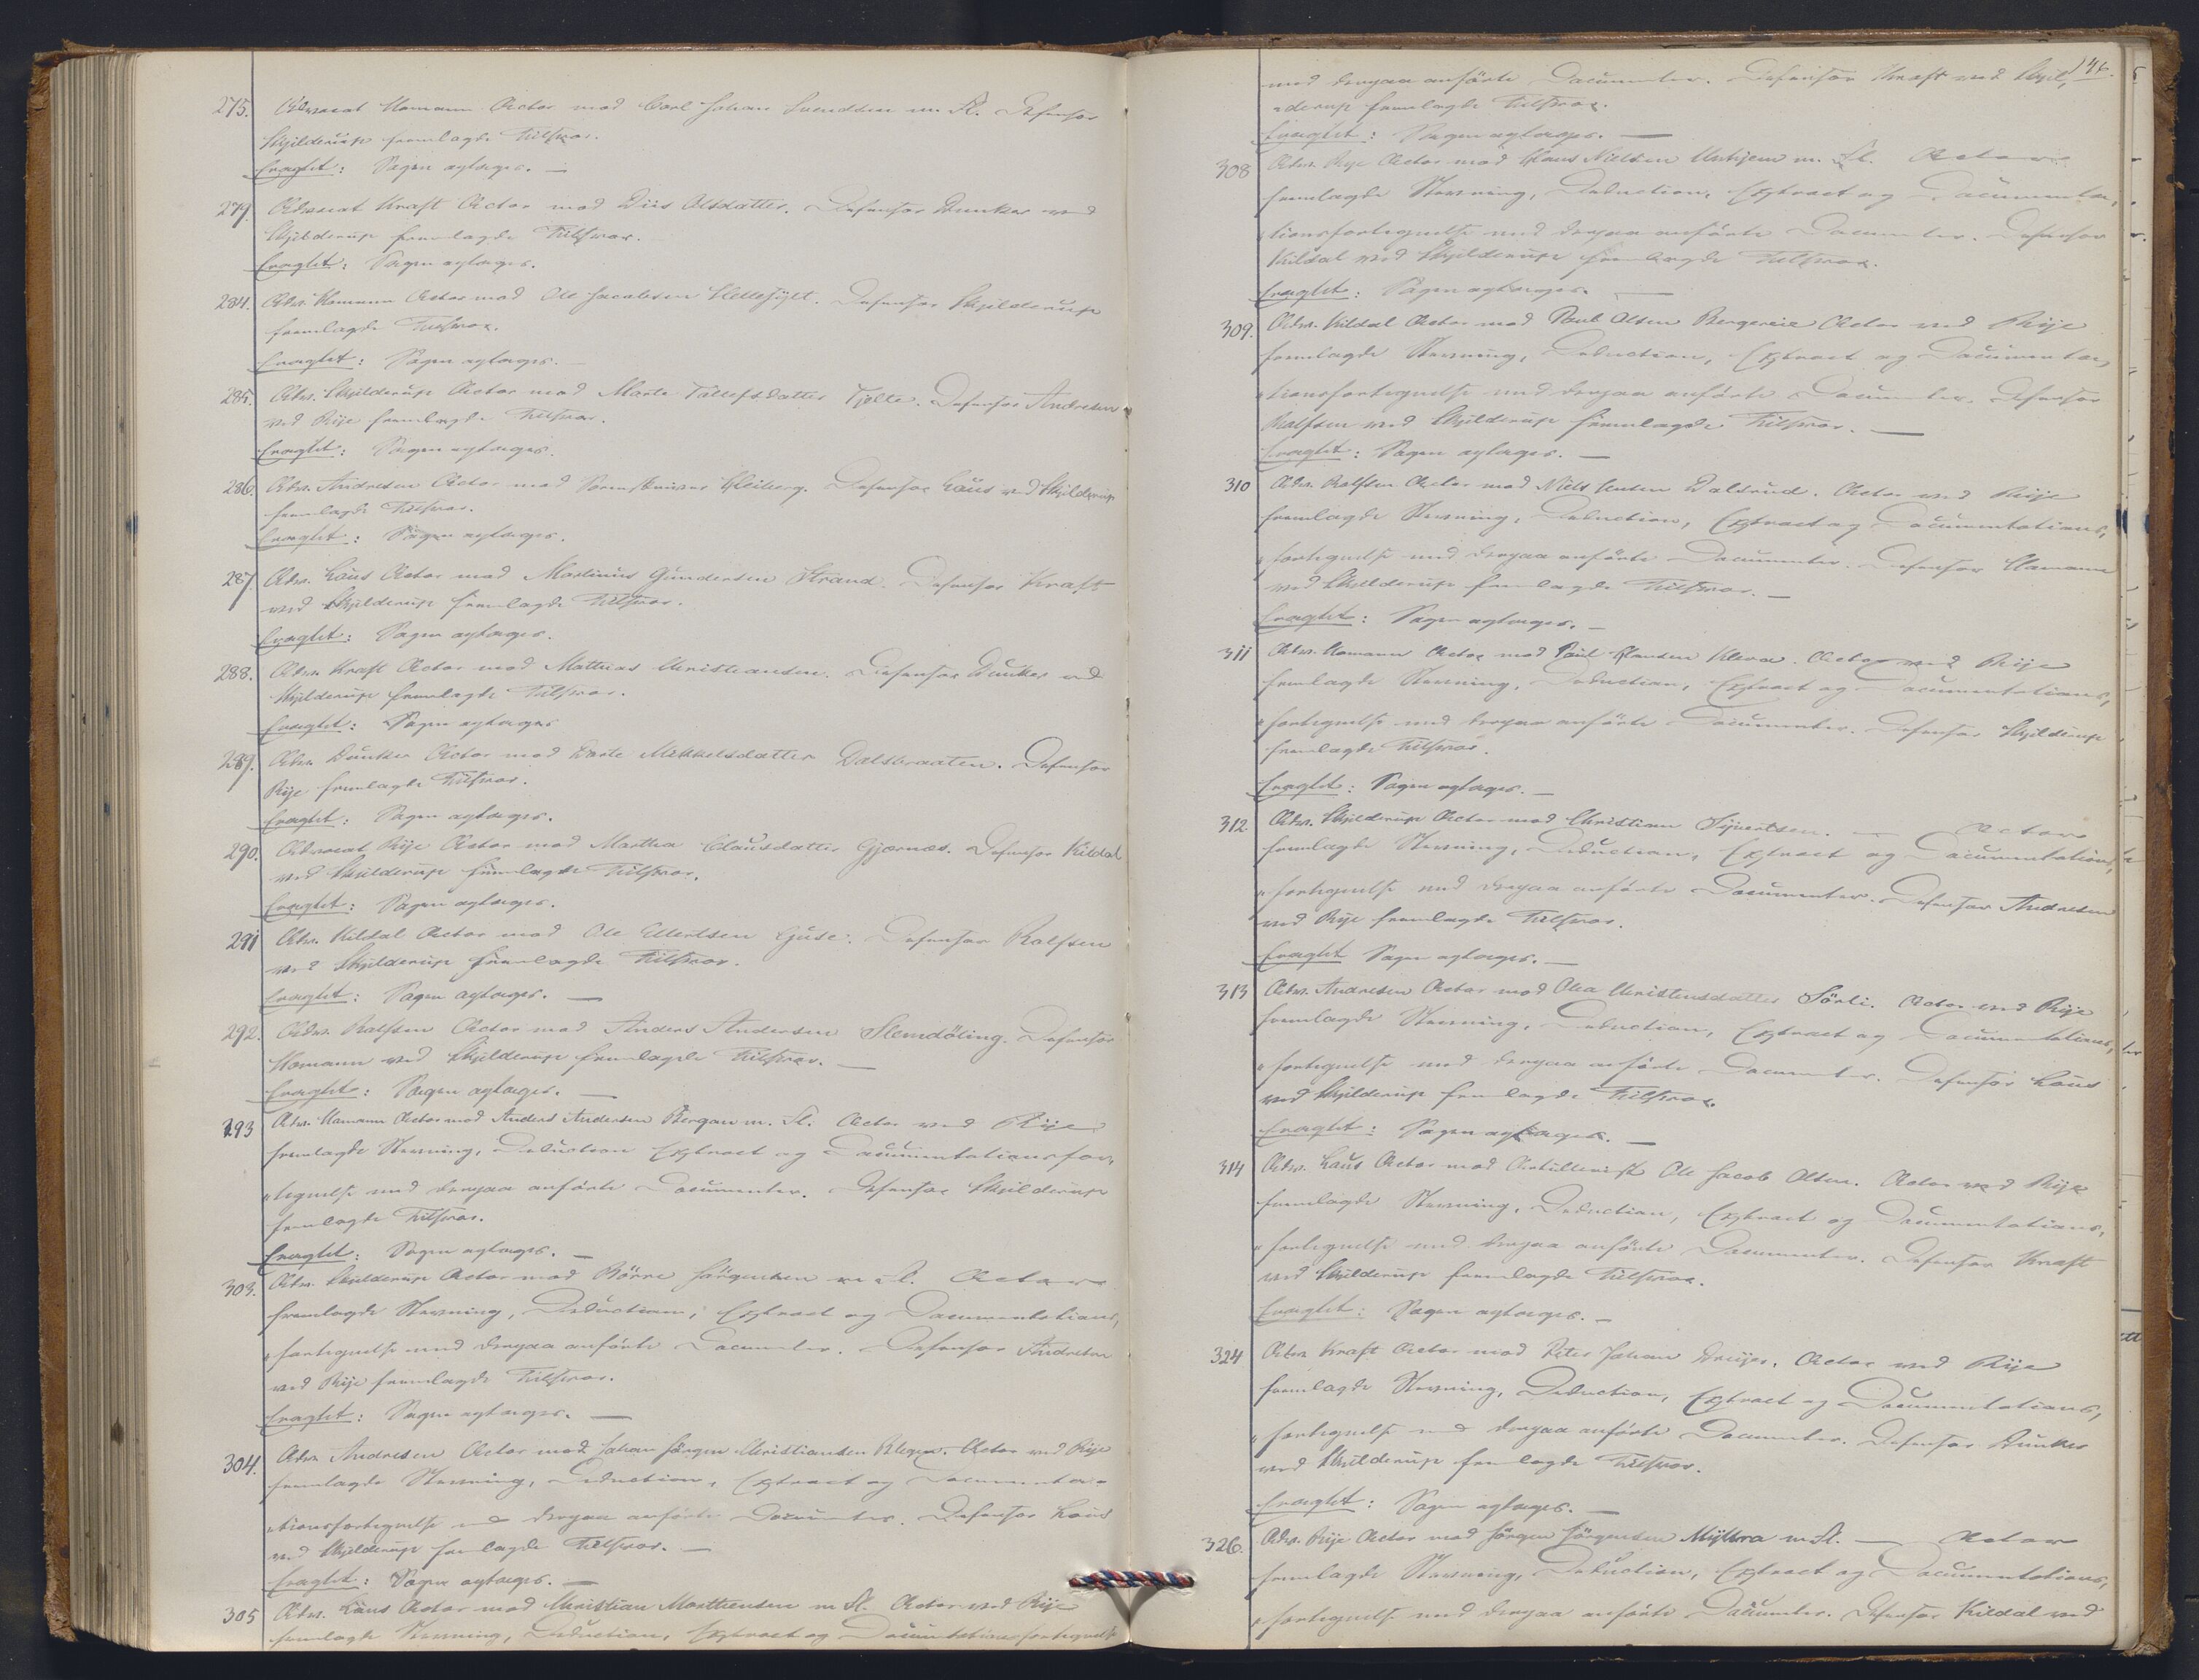 275. Advocat Homann Actor mod Carl Johan Svendsen m. Fl. Defensor
Skjilderup fremlagde Tilsvar.
Eragtet: Sagen optages. —
279. Advocat Kraft Actor mod Olsdatter. Defensor Dunker ved
Skjilderup fremlagde Tilsvar.
Eragtet: Sagen optages.
284. Adv. Homann Actor mod Ole Jacobsen Hellesylt. Defensor Skjilderup
fremlagde Tilsvar.
Eragtet: Sagen optages. —
285. Adv. Skjilderup Actor mod Marte Tollefsdatter Tjølte. Defensor Andresen
ved Rije fremlagde Tilsvar.
Eragtet: Sagen optages.
286. Adv. Andresen Actor mod Heiberg. Defensor Laus ved Skjilderup
fremlagde Tilsvar.
Eragtet: Sagen optages.
287. Adv. Laus Actor mod Martinus Gundersen Strand. Defensor Kraft
ved Skjilderup fremlagde Tilsvar.
Eragtet: Sagen optages.
288. Adv. Kraft Actor mod Mathias Christiansen. Defensor Dunker ved
Skjilderup fremlagde Tilsvar.
Eragtet: Sagen optages
289. Adv. Dunker Actor mod Dorte Mikkelsdatter Dalsbraaten. Defensor
Rije fremlagde Tilsvar.
Eragtet: Sagen optages.
290. Advocat Rije Actor mod Marthea Clausdatter Gjærnæs. Defensor Kildal
ved Skjilderup fremlagde Tilsvar.
Eragtet: Sagen optages.
291 Adv. Kildal Actor mod Ole Ellertsen Defensor Rolfsen
ved Skjilderup fremlagde Tilsvar.
Eragtet: Sagen optages. —
292. Adv. Rolfsen Actor mod Anders Andersen Slemdöling. Defensor
Homann ved Skjilderup fremlagde Tilsvar. —
Eragtet: Sagen optages. —
293 Adv. Homann Actor mod Anders Andersen Bergan m. Fl. Actor ved Rije
fremlagde Stevning, Deduction Extract og Documentationsfor,
"tegnelse med derpaa anförte Documenter. Defensor Skjilderup
fremlagde Tilsvar.
Eragtet: Sagen optages. —
303. Adv. Skjilderup Actor mod Börre Jörgensen m. Fl. Actor
fremlagde Stevning, Deduction, Extract og Documentations,
"fortegnelse med derpaa anförte Documenter. Defensor Andresen
ved Rije fremlagde Tilsvar.
Eragtet: Sagen optages. —
304. Adv. Andresen Actor mod Johan Jörgen Christiansen Blegen. Actor ved Rije
fremlagde Stevning, Deduction, Extract og Documenta-
"tionsfortegnelse med derpaa anförte Documenter. Defensor Laus
ved Skjilderup fremlagde Tilsvar. —
Eragtet: Sagen optages. —
305 Adv. Laus Actor mod Christian Marthensen m Fl. Actor ved Rije
fremlagde Stevning, Deduction, Extract og Documentationsfortegnelse
146.
med derpaa anförte Documenter. Defensor Kraft ved Skjil,
"derup fremlagde Tilsvar.
Eragtet: Sagen optages. —
308 Adv. Rije Actor mod Hans Nielsen m. Fl. Actor
fremlagde Stevning, Deduction, Extract og Documenta,
"tionsfortegnelse med derpaa anförte Documenter. Defensor
Kildal ved Skjilderup fremlagde Tilsvar.
Eragtet: Sagen optages. —
309. Adv. Kildal Actor mod Poul Olsen Bergereie Actor ved Rije
fremlagde Stevning, Deduction, Extract og Documenta,
"tionsfortegnelse med derpaa anförte Documenter. Defensor
Rolfsen ved Skjilderup fremlagde Tilsvar. —
Eragtet: Sagen optages. —
310 Adv. Rolfsen Actor mod Niels Jensen Dalsrud. Actor ved Rije
fremlagde Stevning, Deduction, Extract og Documentations,
"fortegnelse med derpaa anförte Documenter. Defensor Homann
ved Skjilderup fremlagde Tilsvar. —
Eragtet: Sagen optages. —
311 Adv. Homann Actor mod Paul Hansen Kleva. Actor ved Rije
fremlagde Stevning, Deduction, Extract og Documentations,
"fortegnelse med derpaa anförte Documenter. Defensor Skjilderup
fremlagde Tilsvar.
Eragtet: Sagen optages. —
312. Adv. Skjilderup Actor mod Christian Sijvertsen. — Actor
fremlagde Stevning, Deduction, Extract og Documentations,
"fortegnelse med derpaa anförte Documenter. Defensor Andresen
ved Rije fremlagde Tilsvar.
Eragtet Sagen optages. —
313 Adv. Andresen Actor mod Olea Christensdatter Sörli. Actor ved Rije
fremlagde Stevning, Deduction, Extract og Documentations,
"fortegnelse med derpaa anförte Documenter. Defensor Laus
ved Skjilderup fremlagde Tilsvar.
Eragtet: Sagen optages. —
314 Adv. Laus Actor mod Artillerist Ole Jacob Olsen. Actor ved Rije
fremlagde Stevning, Deduction, Extract og Documentations,
"fortegnelse med derpaa anförte Documenter. Defensor Kraft
ved Skjilderup fremlagde Tilsvar.
Eragtet: Sagen optages. —
324 Adv. Kraft Actor mod Peter Johan Actor ved Rije
fremlagde Stevning, Deduction, Extract og Documentations,
"fortegnelse med derpaa anförte Documenter. Defensor Dunker
ved Skjilderup fremlagde Tilsvar.
Eragtet: Sagen optages. —
326. Adv. Rije Actor mod Jörgen Jörgensen Myhra m. Fl. — Actor
fremlagde Stevning, Deduction, Extract og Documentations,
"fortegnelse med derpaa anförte Documenter. Defensor Kildal ved